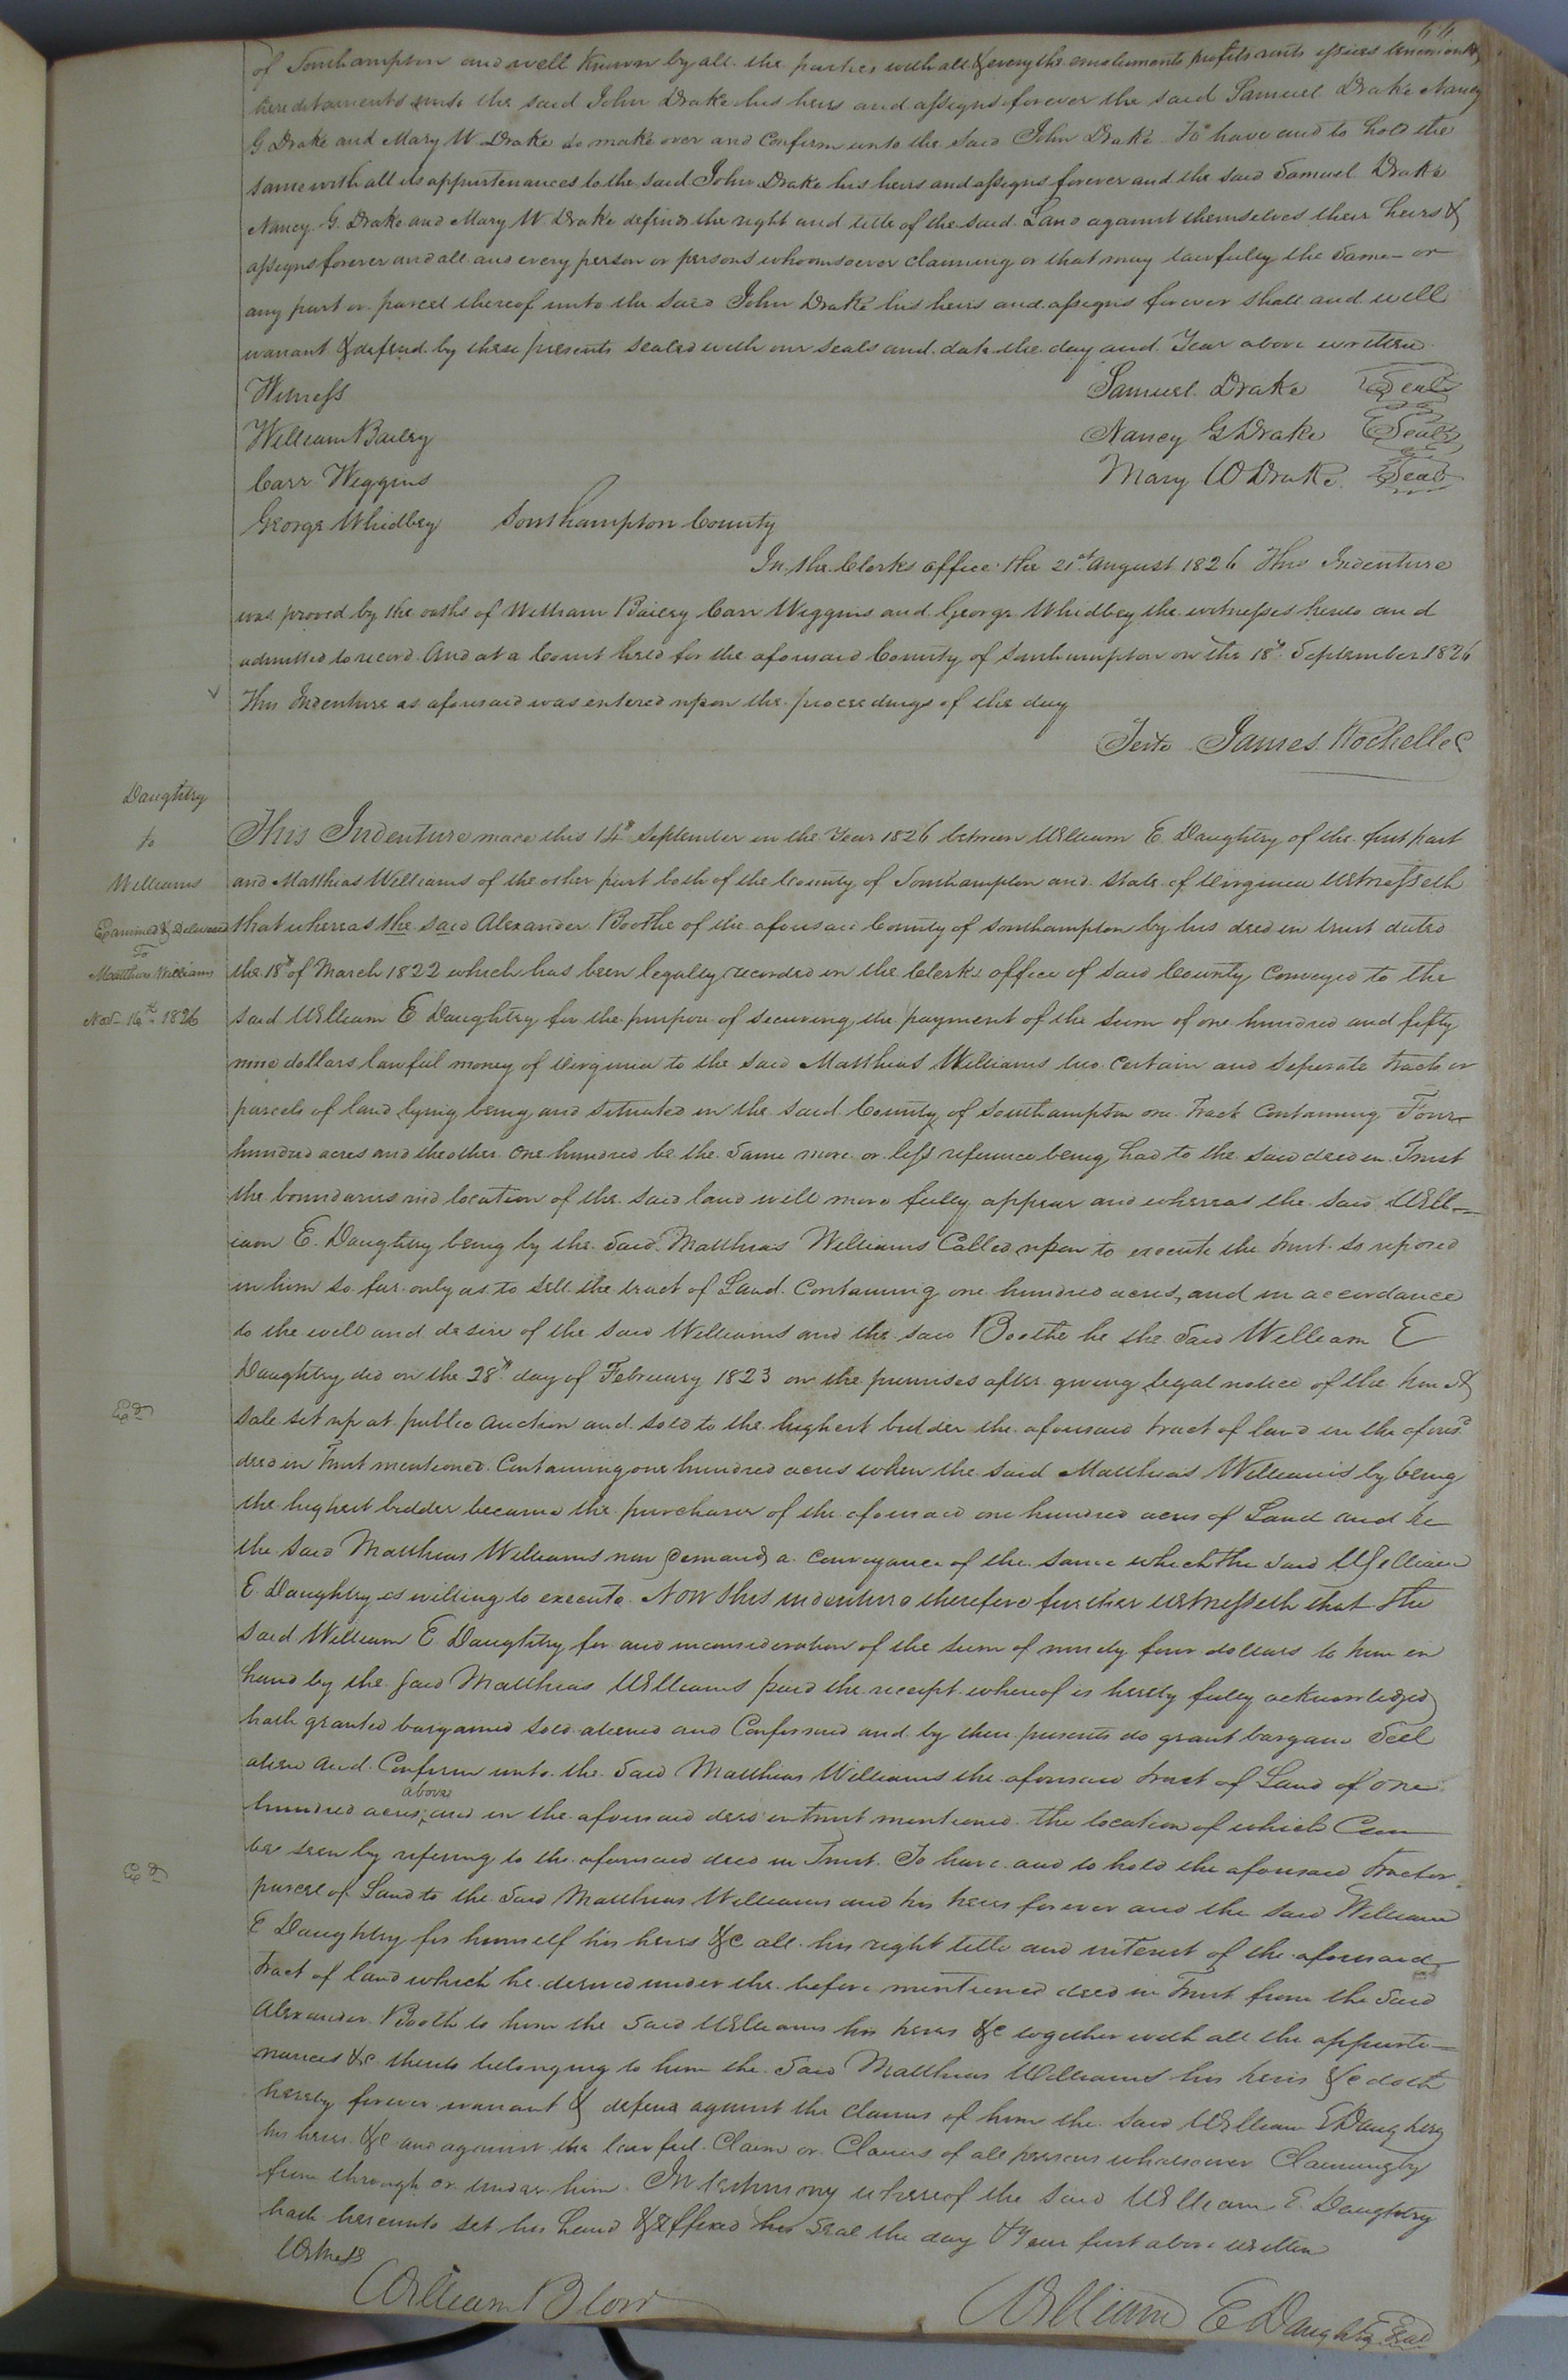 of Southampton and well known by all the parties with all & every the emoluments profits rents issues
hereditaments unto the said John Drake his heirs and assigns forever the said Samuel Drake Nancy
G Drake and Mary W Drake do make over and Confirm unto the said John Drake To have and to hold the
same with all its appurtenances to the said John Drake his heirs and assigns forever and the said Samuel Drake
Nancy G. Drake and Mary W. Drake defend the right and title of the said Land against themselves their heirs &
assigns forever and all and every person or persons whomsoever claiming or that may lawfully the same or
any part or parcel thereof unto the said John Drake his heirs and assigns forever shall and will
warrant & defend by these presents sealed with our seals and date the day and Year above written
Witness Samuel Drake Seal
William Bailey Nancy G Drake Seal
Carr Wiggins Mary W Drake Seal
George Whidbey Southampton County
In the Clerks office the 21st August 1826 This Indenture
was proved by the oaths of William Bailey Carr Wiggins and George Whidbey the witnesses hereto and
admitted to record And at a Court held for the aforesaid County of Southampton on the 18th September 1826
This Indenture as aforesaid was entered upon the proceedings of the day
Teste James Rochelle C
Daughtry
to
Williams
Examined & Delivered
To
Matthias Williams
Nov 16th 1826
This Indenture made this 14th September in the Year 1826 between William E Daughtry of the first part
and Matthias Williams of the other part both of the County of Southampton and State of Virginia Witnesseth
that whereas the said Alexander Boothe of the aforesaid County of Southampton by his deed in trust dated
the 18th of March 1822 which has been legally recorded in the Clerks office of said County Conveyed to the
said William E Daughtry for the purpose of securing the payment of the sum of one hundred and fifty
nine dollars lawful money of Virginia to the said Matthias Williams two certain and seperate tracts or
parcels of land lying being and situated in the said County of Southampton one Tract Containing Four
hundred acres and the other One hundred be the same more or less reference being had to the said deed in Trust
the boundaries and location of the said land will more fully appear and whereas the said Will=
iam E. Daughtry being by the said Matthias Williams Called upon to execute the trust so reposed
in him so far only as to sell the tract of Land Containing one hundred acres, and in accordance
to the will and desire of the said Williams and the said Boothe he the said William E
Daughtry did on the 28th day of February 1823 on the premises after giving legal notice of the time &
sale set up at public auction and sold to the highest bidder the aforesaid tract of land in the aforesd
deed in Trust mentioned Containing one hundred acres when the said Matthias Williams by being
the highest bidder became the purchaser of the aforesaid one hundred acres of Land and he
the said Matthias Williams now demands a conveyance of the same which the said William
E. Daughtry is willing to execute. Now this indenture therefore further witnesseth that the
said William E. Daughtry for and in consideration of the sum of ninety four dollars to him in
hand by the said Matthias Williams paid the receipt whereof is hereby fully acknowledged
hath granted bargained sold aliened and Confirmed and by these presents do grant bargain Sell
alien and Confirm unto the said Matthias Williams the aforesaid tract of Land of One
hundred acres above and in the aforesaid deed in trust mentioned the location of which Can
be seen by refering to the aforesaid deed in Trust. To have and to hold the aforesaid tract or
parcel of Land to the said Matthias Williams and his heirs forever and the said William
E Daughtry for himself his heirs &c all his right title and interest of the aforesaid
tract of land which he derived under the before mentioned deed in Trust from the said
Alexander Booth to him the said Williams his heirs &c together with all the appurte=
nances &c thereto belonging to him the said Matthias Williams his heirs &c doth
hereby forever warrant & defend against the claims of him the said William E Daughtry
his heirs &c and against the lawful Claim or Claims of all persons whatsoever Claiming by
from through or under him. In testimony whereof the said William E. Daughtry
hath hereunto set his hand & affixed his seal the day & Year first above written
Witness
William Blow William E Daughtry Seal